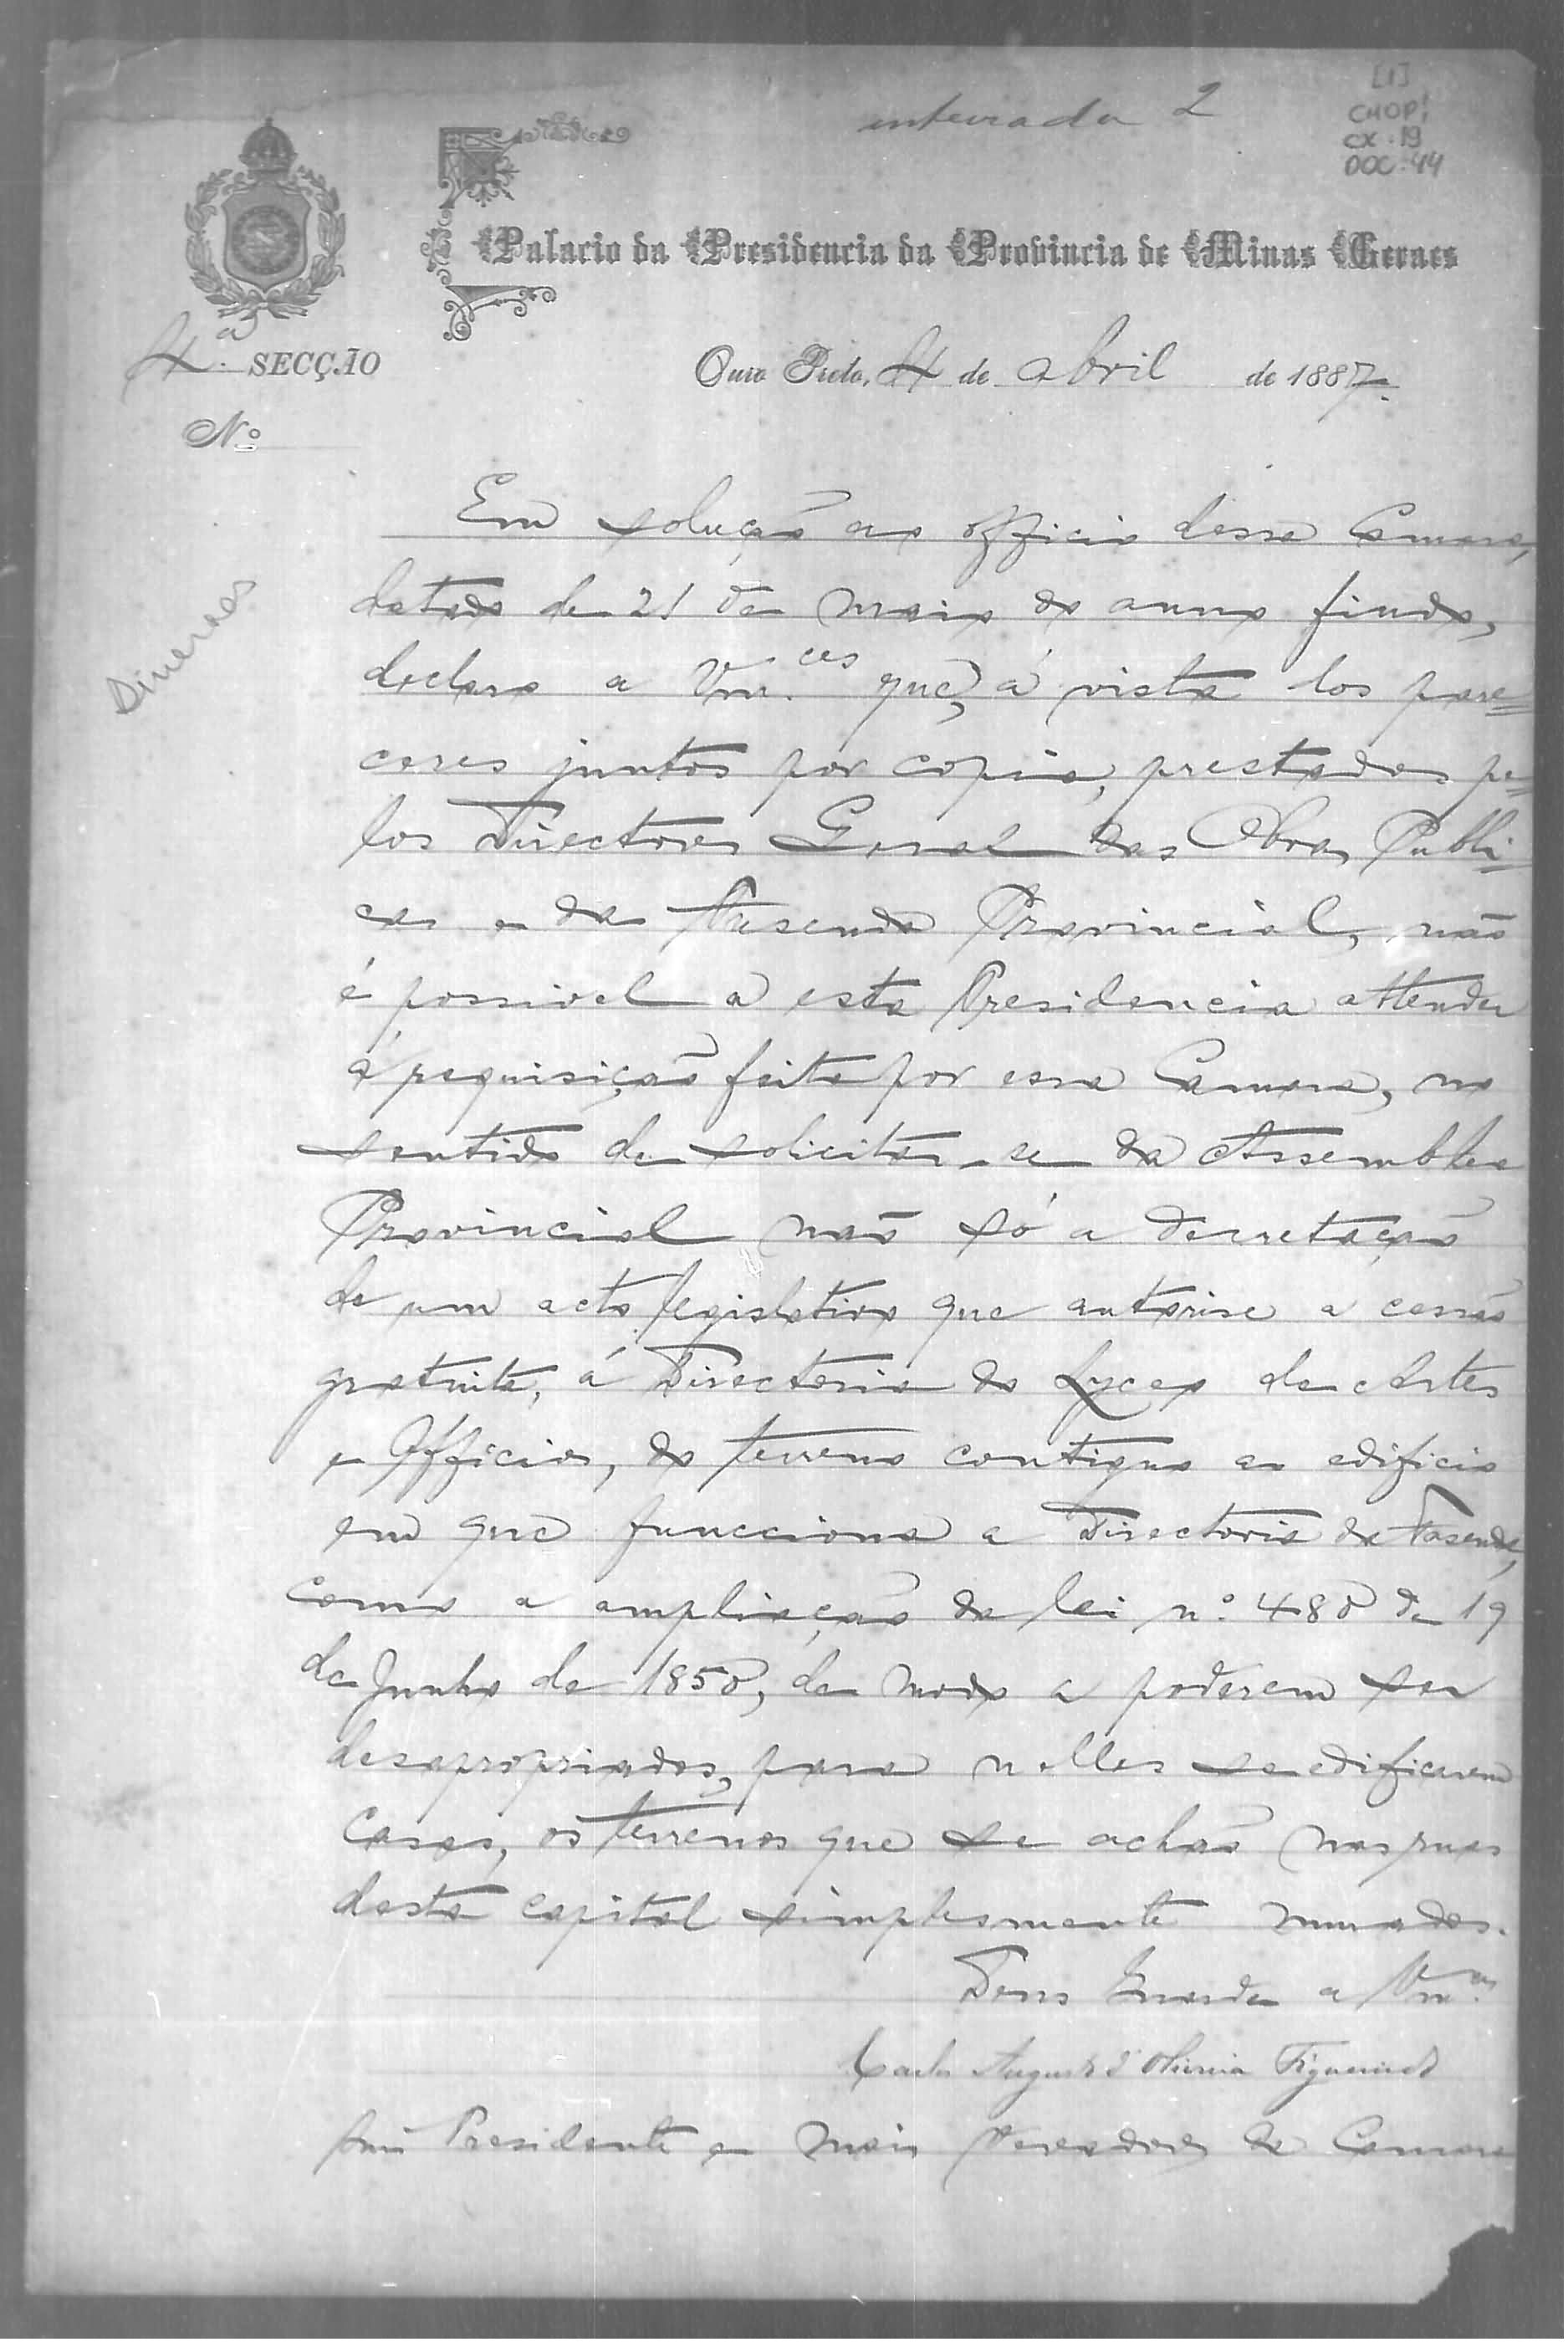 [1]
CMOP!
CX. 19
DOC. 44
inteirada 2
Palacio da Presidencia da Provincia de Minas Geraes
4.a SECÇÃO
Ouro Preto, 4 de abril de 1887.
Nº
Diversos
Em solução ao officio dessa Camara,
datado de 21 de maio do anno findo,
declaro a Vm.ces que, á vista dos pare=
ceres juntos por copia, prestados pe=
los Directores Geral das Obras Publi=
cas e da Fasenda Provincial, não
é possivel a esta Presidencia attender
á requisição feita por essa Camara, no
sentido de solicitar-se da Assemblea
Provincial não só a decretação
de um acto legislativo que autorise a cessão
gratuita, á Directoria do Lyceo de Artes
e Officios, do terreno contiguo ao edificio
em que funcciona a Directoria da Fasenda,
como a ampliação da lei nº. 480 de 19
de Junho de 1850, de modo a poderem ser
desapropriados, para n'elles se edificarem
casas, os terrenos que se achão nas ruas
desta capital simplesmente murados.
Deus Guarde a Vm.ces
Carlos Augusto d'Oliveira Figueiredo
Presidente e mais Vereadores da Camara